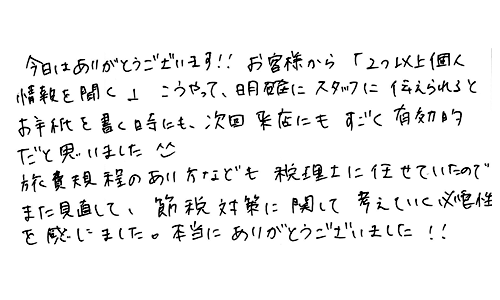 今日はありがとうございます!! お客様から「2つ以上個人
情報を聞く」 こうやって、明確に スタッフに 伝えられると
お手紙を書く時にも、次回 来店にも すごく 有効的
だと思いました
旅費規程のあり方なども 税理士に任せていたので
また見直して、節税対策に関して 考えていく必要性
を感じました。本当に ありがとうございました!!